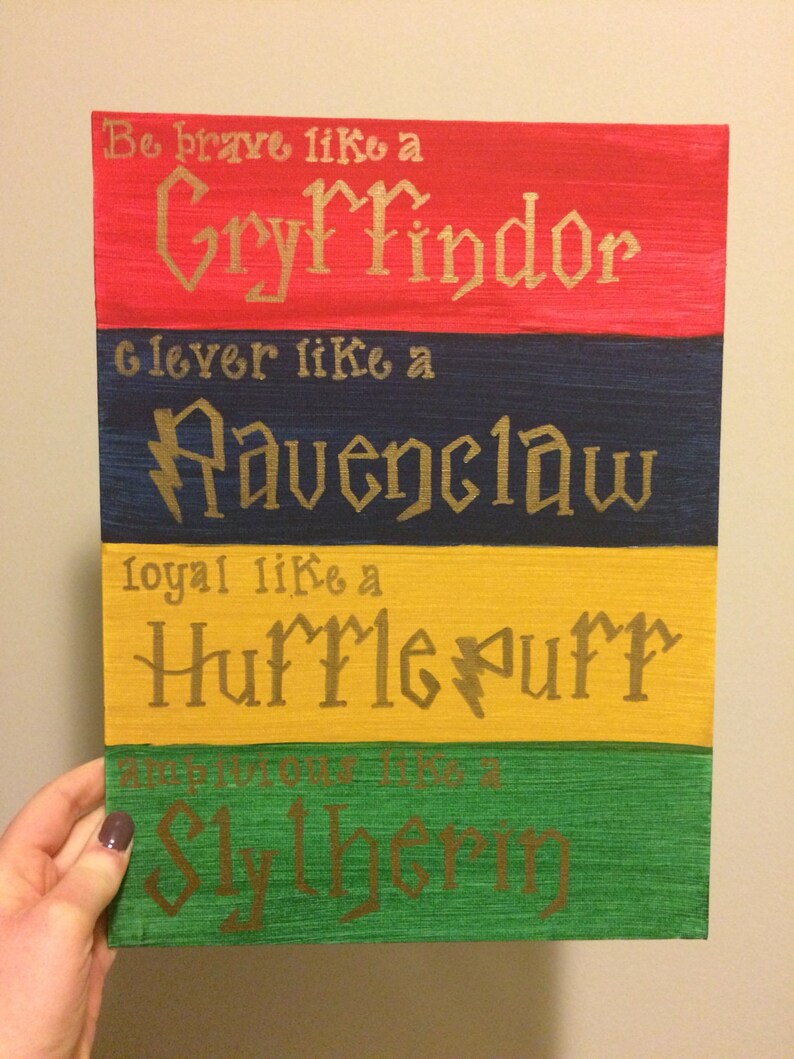 Be brave like a
Gryffindor
clever like a
Ravenclaw
loyal like a
Hufflepuff
ambitious like a
Slytherin